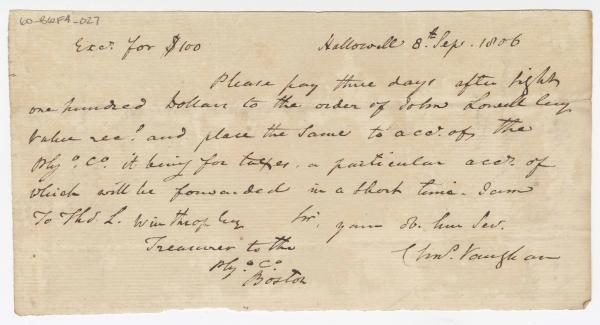 60-BWFA-027
Excᵃ. for $100 Hallowell 8.th Sep. 1806
Please pay three days after sight
one hundred Dollars to the order of John Lowell Esq
Value recᵈ. and place the same to accᵗ. of the
Plyᵒ. Cᵒ. it being for taxes, a particular accᵗ. of
which will be forwarded in a short time. I am
To Thoˢ L. Winthrop Esq Sir, your ob. hum Ser.
Treasurer to the Chaˢ. Vaughan
Plyᵒ. Cᵒ.
Boston